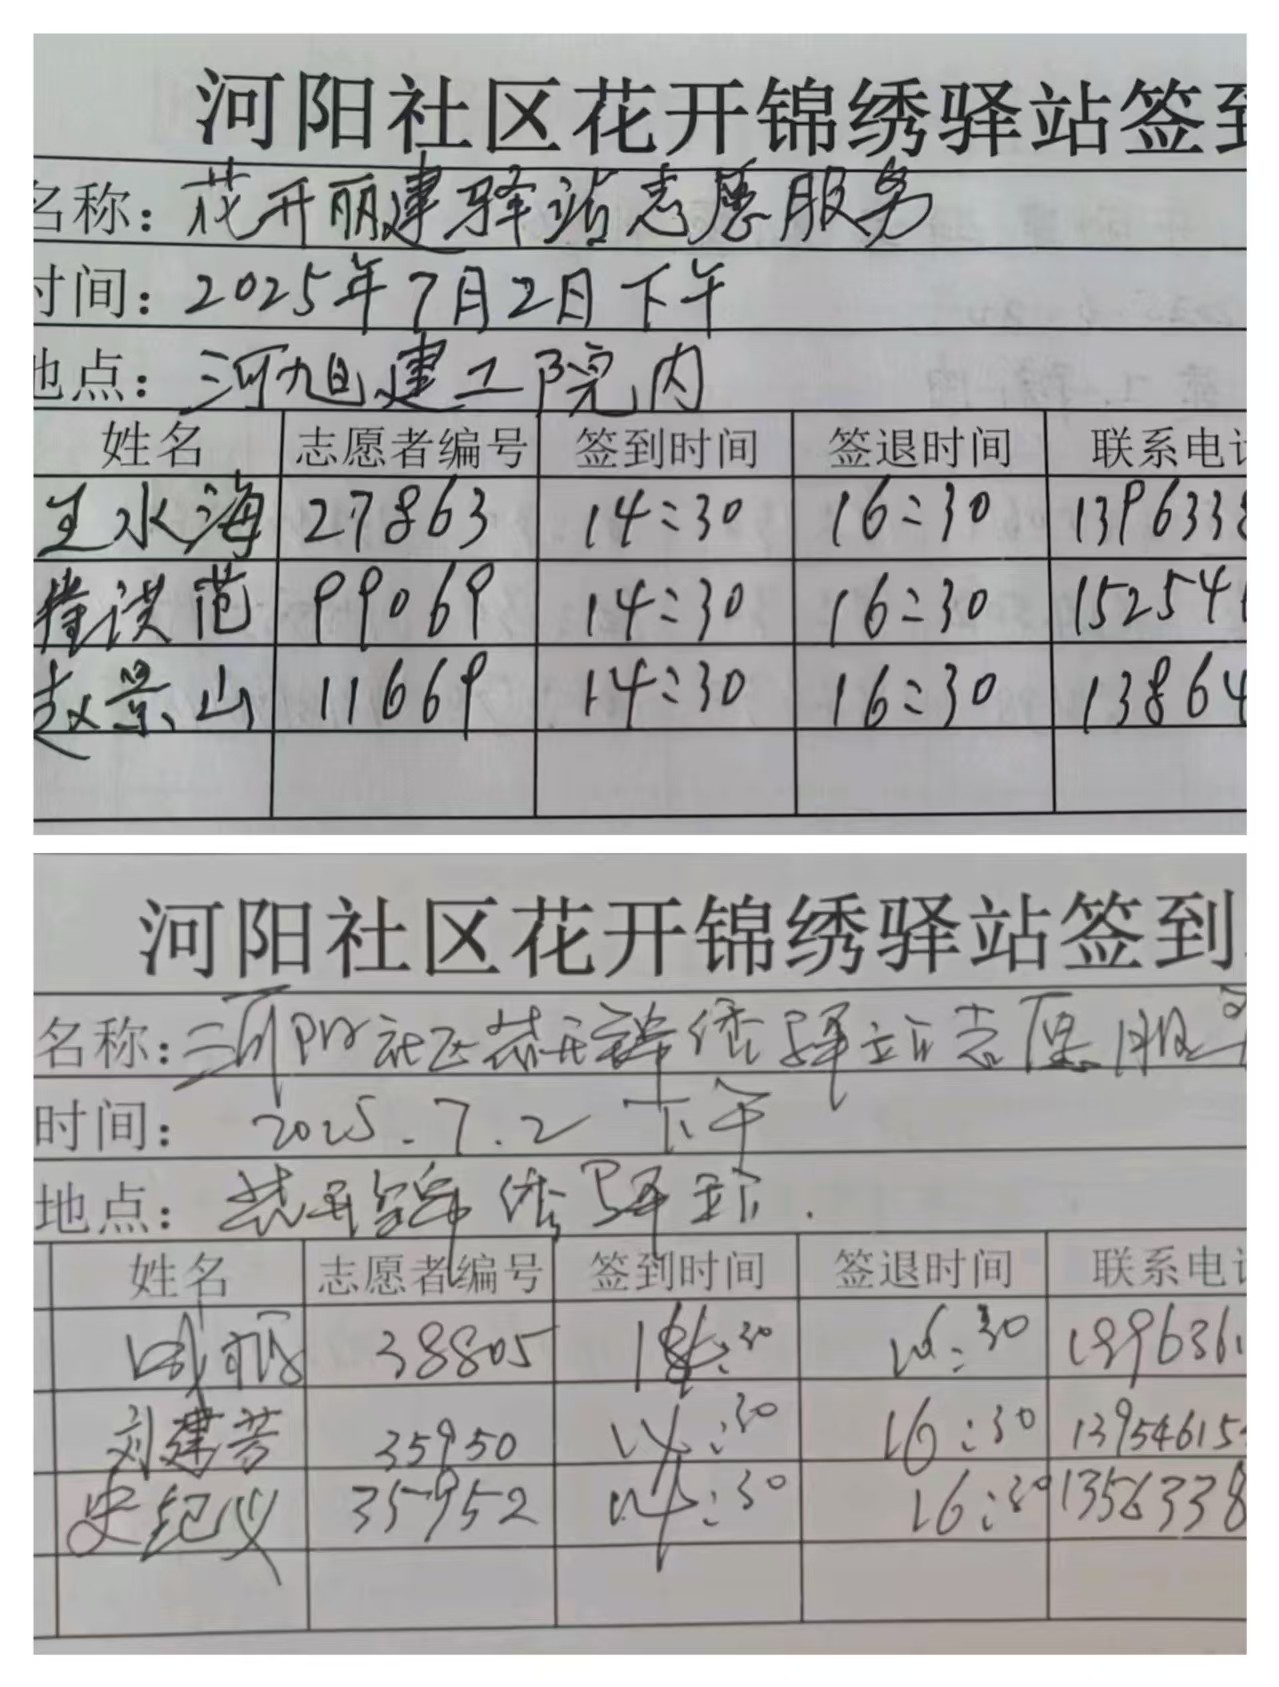 河阳社区花开锦绣驿站签到
名称：花开丽建驿站志愿服务
时间：2025年7月2日下午
地点：河旭建工院内
姓名 志愿者编号 签到时间 签退时间 联系电话
王水海 27863 14:30 16:30 139633
洪范 99069 14:30 16:30 15254
赵景山 11669 14:30 16:30 13864
河阳社区花开锦绣驿站签到
名称：河阳社区花开锦绣驿站志愿服务
时间：2025.7.2 下午
地点：花开锦绣驿站.
姓名 志愿者编号 签到时间 签退时间 联系电话
38805 :30 16:30
刘建芳 35950 14:30 16:30 13954615
史纪义 35952 14:30 16:30 1356338